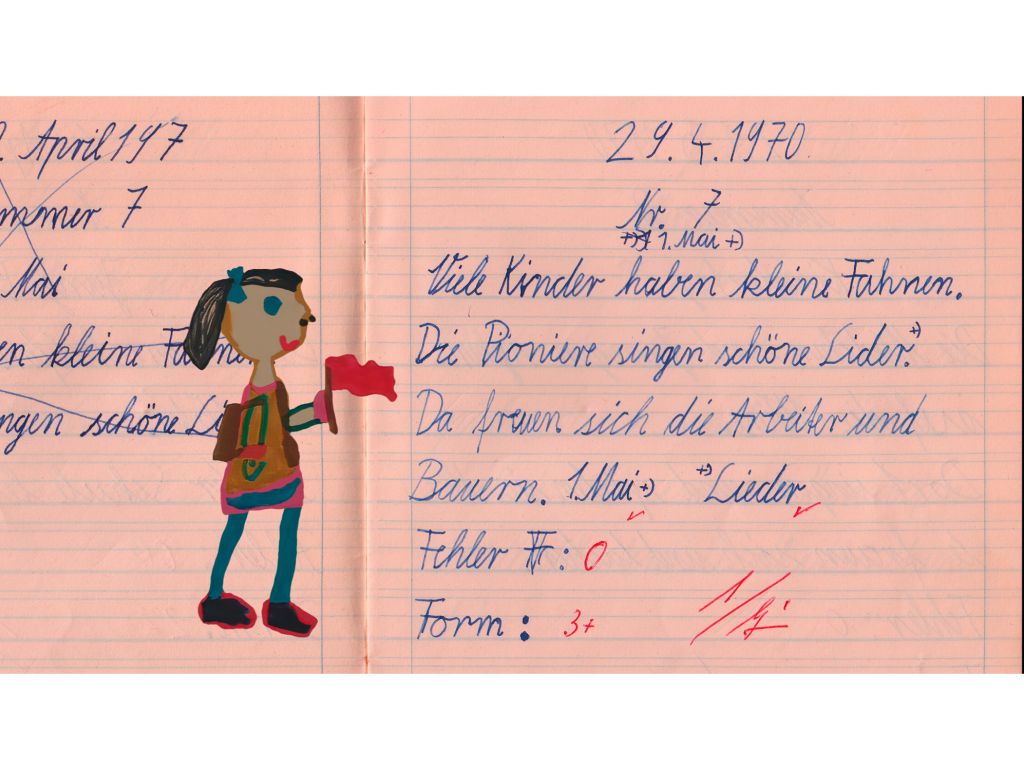 . April 197
mmer 7
Mai
en kleine Fahne
ngen schöne Li
29.4.1970
Nr. 7
1. Mai +)
Viele Kinder haben kleine Fahnen.
Die Pioniere singen schöne Lider.+)
Da freuen sich die Arbeiter und
Bauern. 1. Mai +) +) Lieder
Fehler : 0
Form : 3+